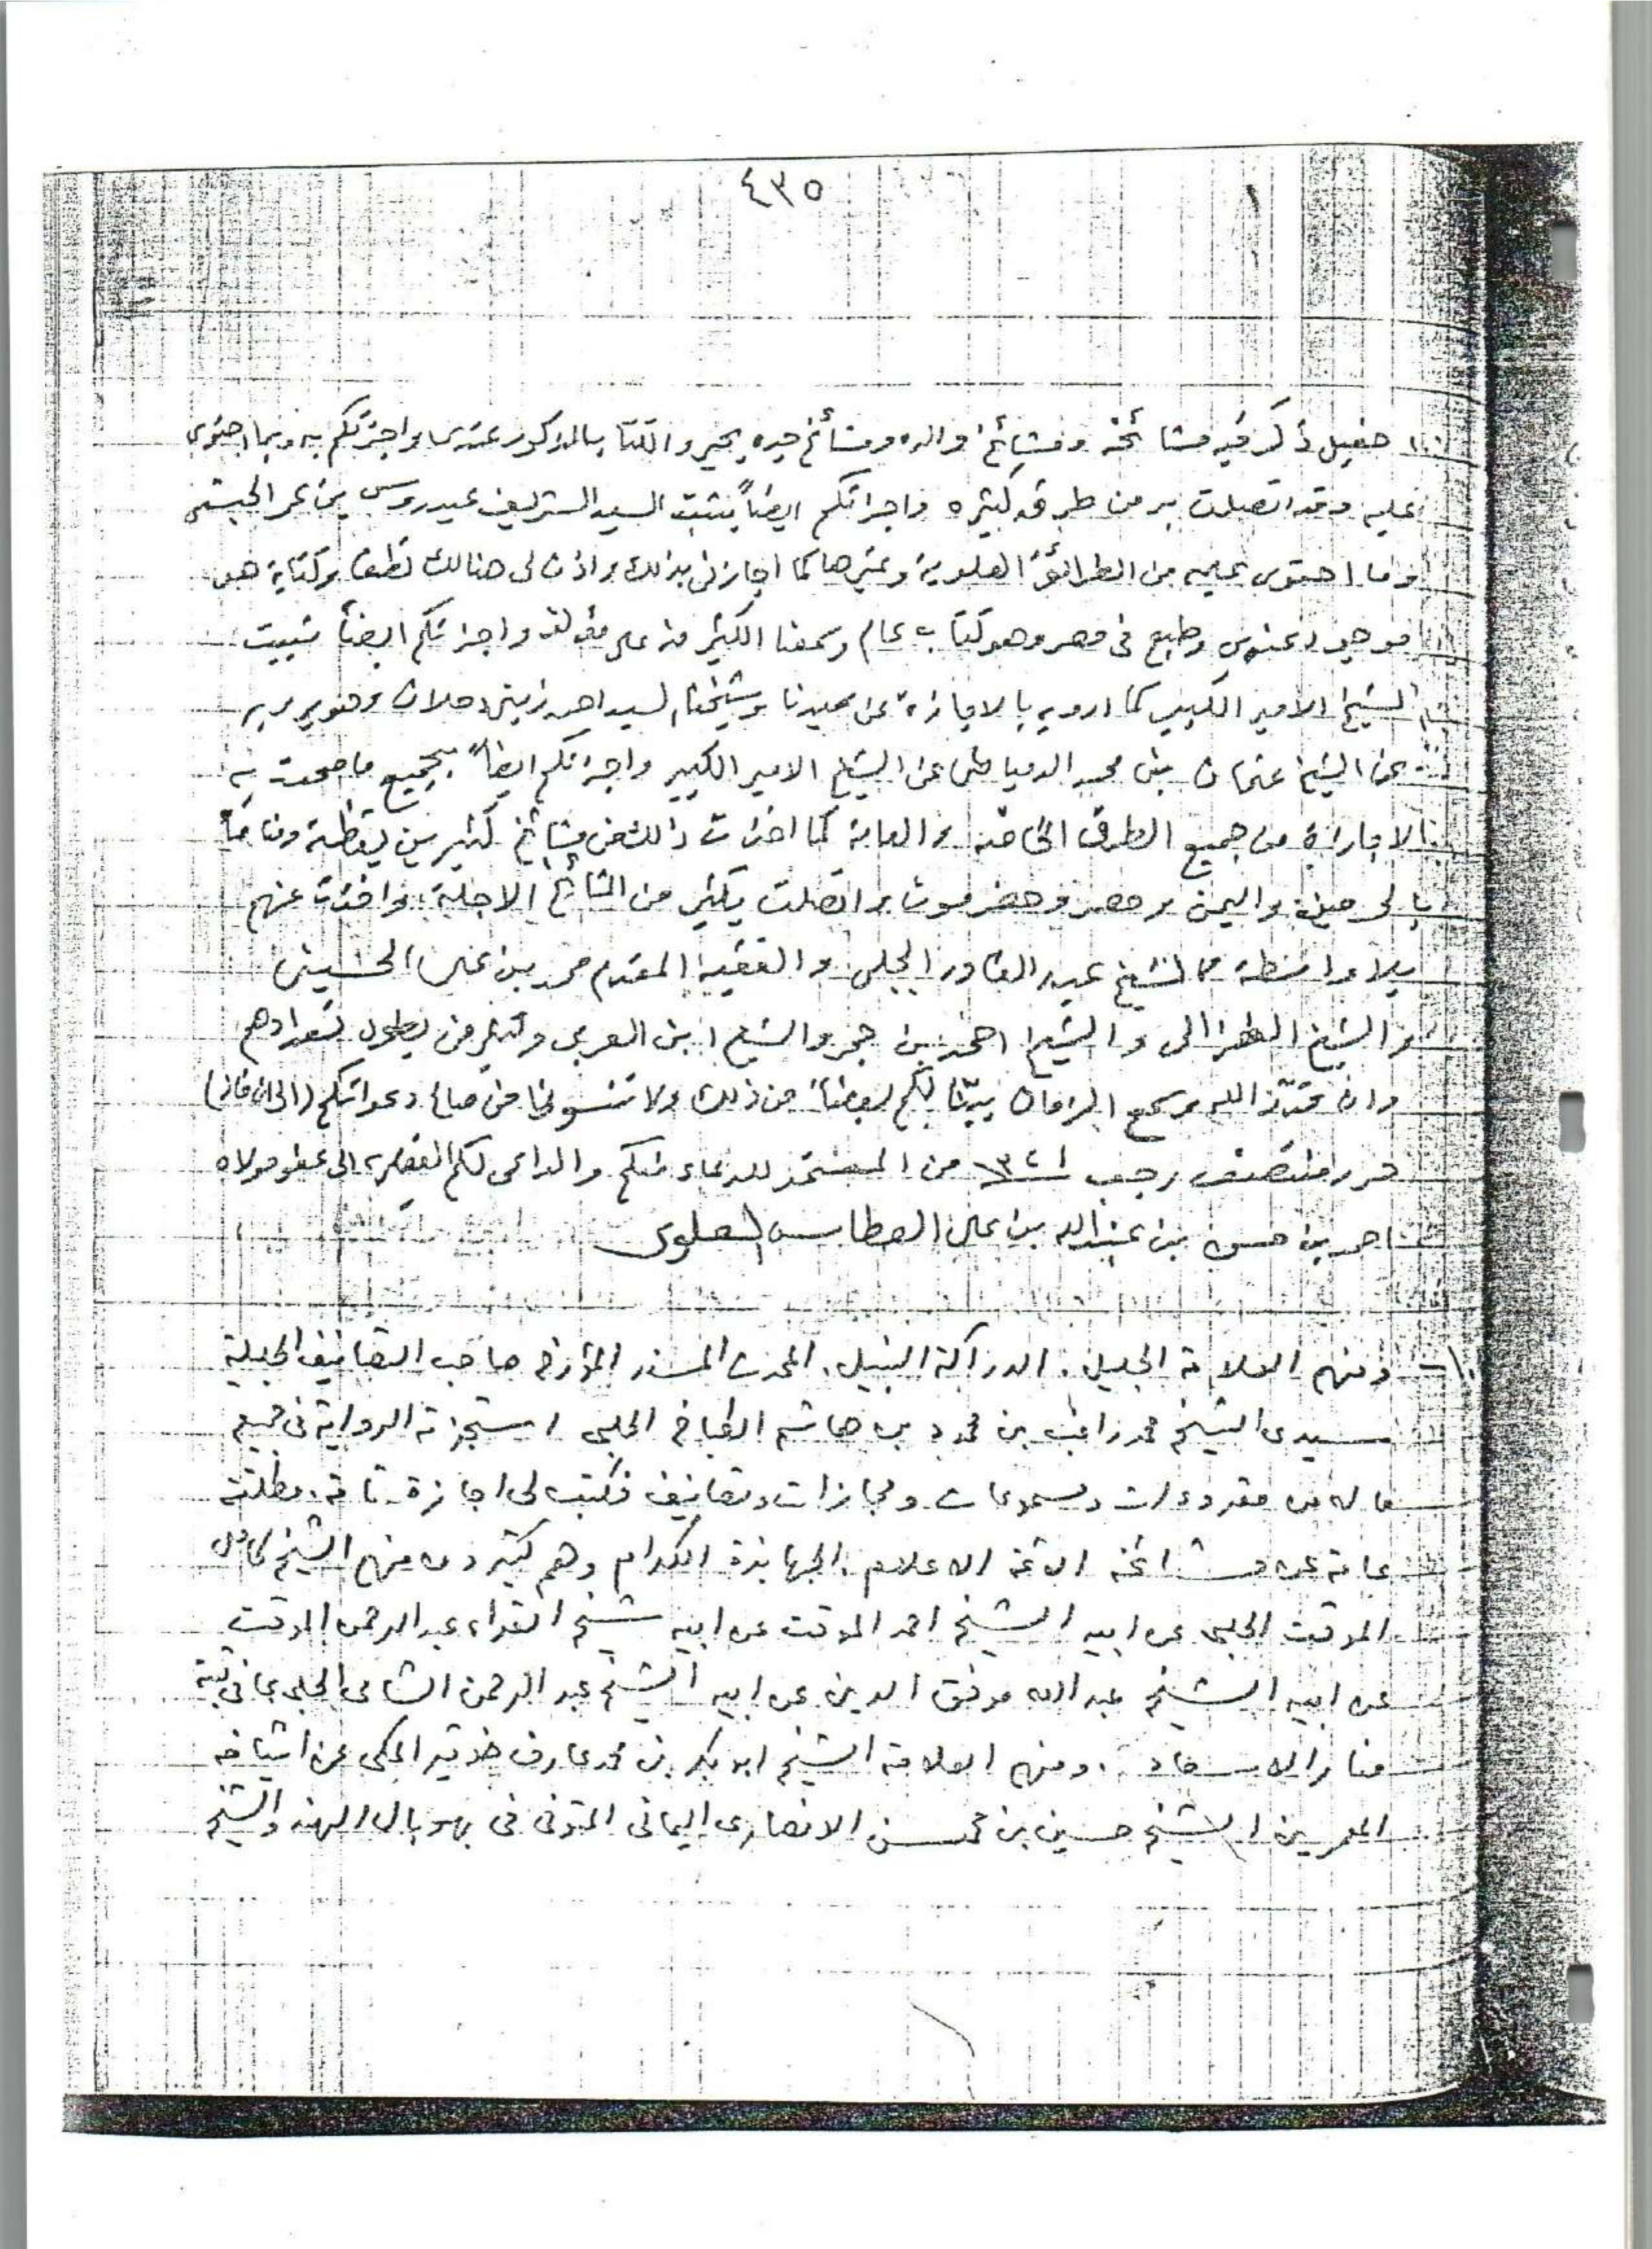 ٤٣٥
حفيل ذكر فيه مشائخه ومشائخ والده ومشائخ جده يحي والكتاب المذكور عندى واجزتكم به وبما احتوى
عليه وقد اتصلت به من طرق كثيره واجزتكم ايضاً بثبت السيد الشريف عيدروس بن عمر الحبشى
وما احتوى عليه من الطرائق العلوية وغيرها كما اجازنى بذلك واذن لى هنالك نطقا وكتابة هو
موجود عندى وطبع فى مصر وهو كتاب عام وسمعنا الكثير منه على مؤلفه واجزتكم ايضاً بثبت
الشيخ الامير الكبير كما ارويه بالاجازة عن سيدنا وشيخنا السيد احمد زينى دحلان وهو يرويه
عن الشيخ عثمان بن محمد الدمياطى عن الشيخ الامير الكبير واجزتكم ايضاً بجميع ما صحت به
الاجازة من جميع الطرق الخاصة والعامة كما اخذت ذلك عن مشائخ كثيرين يقظة ومناماً
بالحرمين واليمن ومصر وحضرموت واتصلت بكثير من المشائخ الاجلة واخذت عنهم
بلا واسطة كالشيخ عبد القادر الجيلى والفقيه المقدم محمد بن على الحسينى
والشيخ الغزالى والشيخ احمد بن حجر والشيخ ابن العربى وكثير من يطول تعدادهم
وان قدّر الله وسمح الزمان بيّنّا لكم بعضاً من ذلك ولا تنسونا من صالح دعواتكم (الى ان قال)
حرر منتصف رجب ١٣٢١ من المستمد للدعاء منكم والداعى لكم الفقير الى عفو مولاه
احمد بن حسن بن عبد الله بن على العطاس العلوى
١٠ــ ومنهم العلامة الجليل. الدراكة النبيل. المحدث المسند المؤرخ صاحب التصانيف الجليلة
سيدى الشيخ محمد راغب بن محمود بن هاشم الطباخ الحلبى استجزته الرواية فى جميع
ما له من مقروءات ومسموعات ومجازات وتصانيف فكتب لى اجازة تامة. مطلقة
عامة عن مشائخه الائمة الاعلام. الجهابذة الكرام وهم كثيرون منهم الشيخ كامل
الموقت الحلبى عن ابيه الشيخ احمد الموقت عن ابيه شيخ القراء عبد الرحمن الموقت
عن ابيه الشيخ عبد الله موفق الدين عن ابيه الشيخ عبد الرحمن الشامى الحلبى بما فى ثبته
منار الاسعاد. ومنهم العلامة الشيخ ابو بكر بن محمد عارف خوقير المكى عن اشياخه
المعمرين الشيخ حسين بن محسن الانصارى اليمانى المتوفى فى بهوبال الهند والشيخ